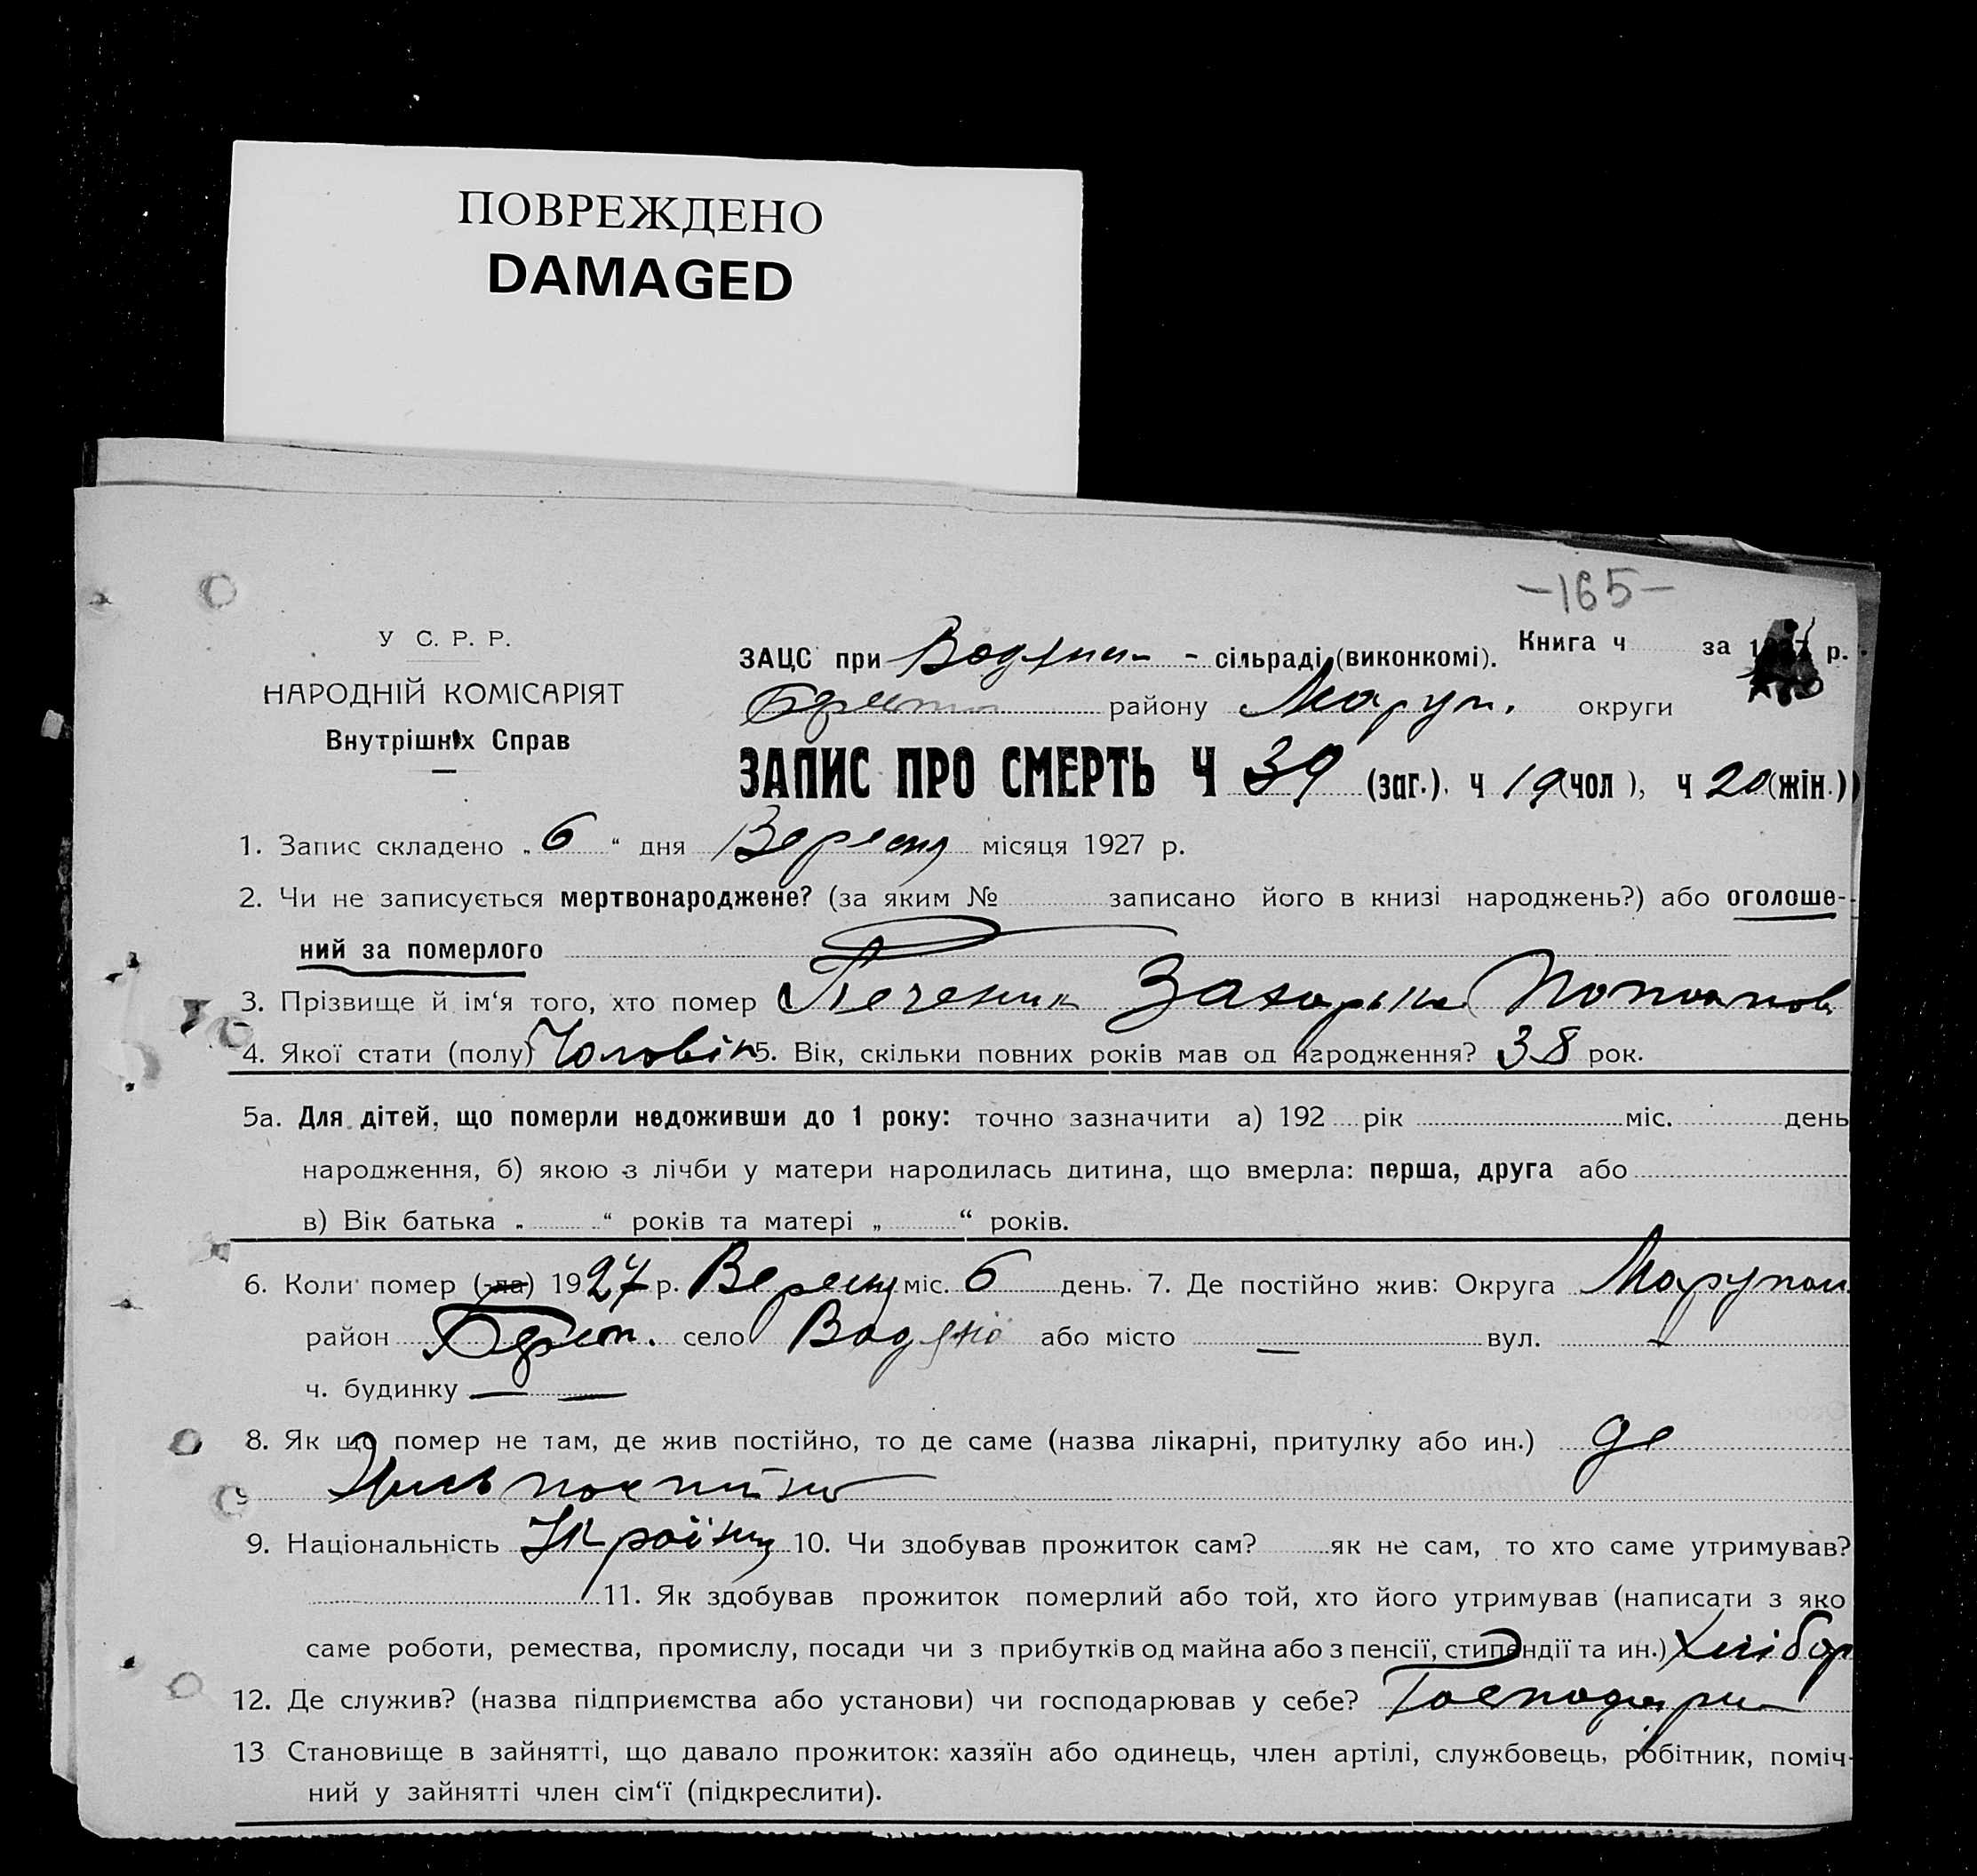 ПОВРЕЖДЕНО
DAMAGED
-165-
У С. Р. Р.
НАРОДНІЙ КОМІСАРІЯТ
Внутрішніх Справ
Книга ч за 1927 р.
ЗАЦС при Водян - сільраді (виконкомі).
району Маруп. округи
ЗАПИС ПРО СМЕРТЬ Ч 39 (заг.). ч 19 (чол), ч 20 (жін.)
1. Запис складено „6“ дня Вересня місяця 1927 р.
2. Чи не записується мертвонароджене? (за яким № записано його в книзі народжень?) або оголоше-
ний за померлого
3. Прізвище й ім‘я того, хто помер Печеник Захарька
4. Якої стати (полу) Чоловік 5. Вік, скільки повних років мав од народження? 38 рок.
5а. Для дітей, що померли недоживши до 1 року: точно зазначити а) 192 рік міс. день
народження, б) якою з лічби у матери народилась дитина, що вмерла: перша, друга або
в) Вік батька „ “ років та матері „ “ років.
6. Коли помер (-ла) 1927 р. Вересня міс. 6 день. 7. Де постійно жив: Округа Марупол
район село Водяно або місто — вул. -
ч. будинку — —
8. Як що помер не там, де жив постійно, то де саме (назва лікарні, притулку або ин.) де
жив постійно
9. Національність Україн 10. Чи здобував прожиток сам? як не сам, то хто саме утримував?
11. Як здобував прожиток померлий або той, хто його утримував (написати з яко
саме роботи, ремества, промислу, посади чи з прибутків од майна або з пенсії, стипендії та ин.) Хлібор
12. Де служив? (назва підприємства або установи) чи господарював у себе? Господари
13 Становище в зайнятті, що давало прожиток: хазяїн або одинець, член артілі, службовець, робітник, поміч-
ний у зайнятті член сім‘ї (підкреслити).